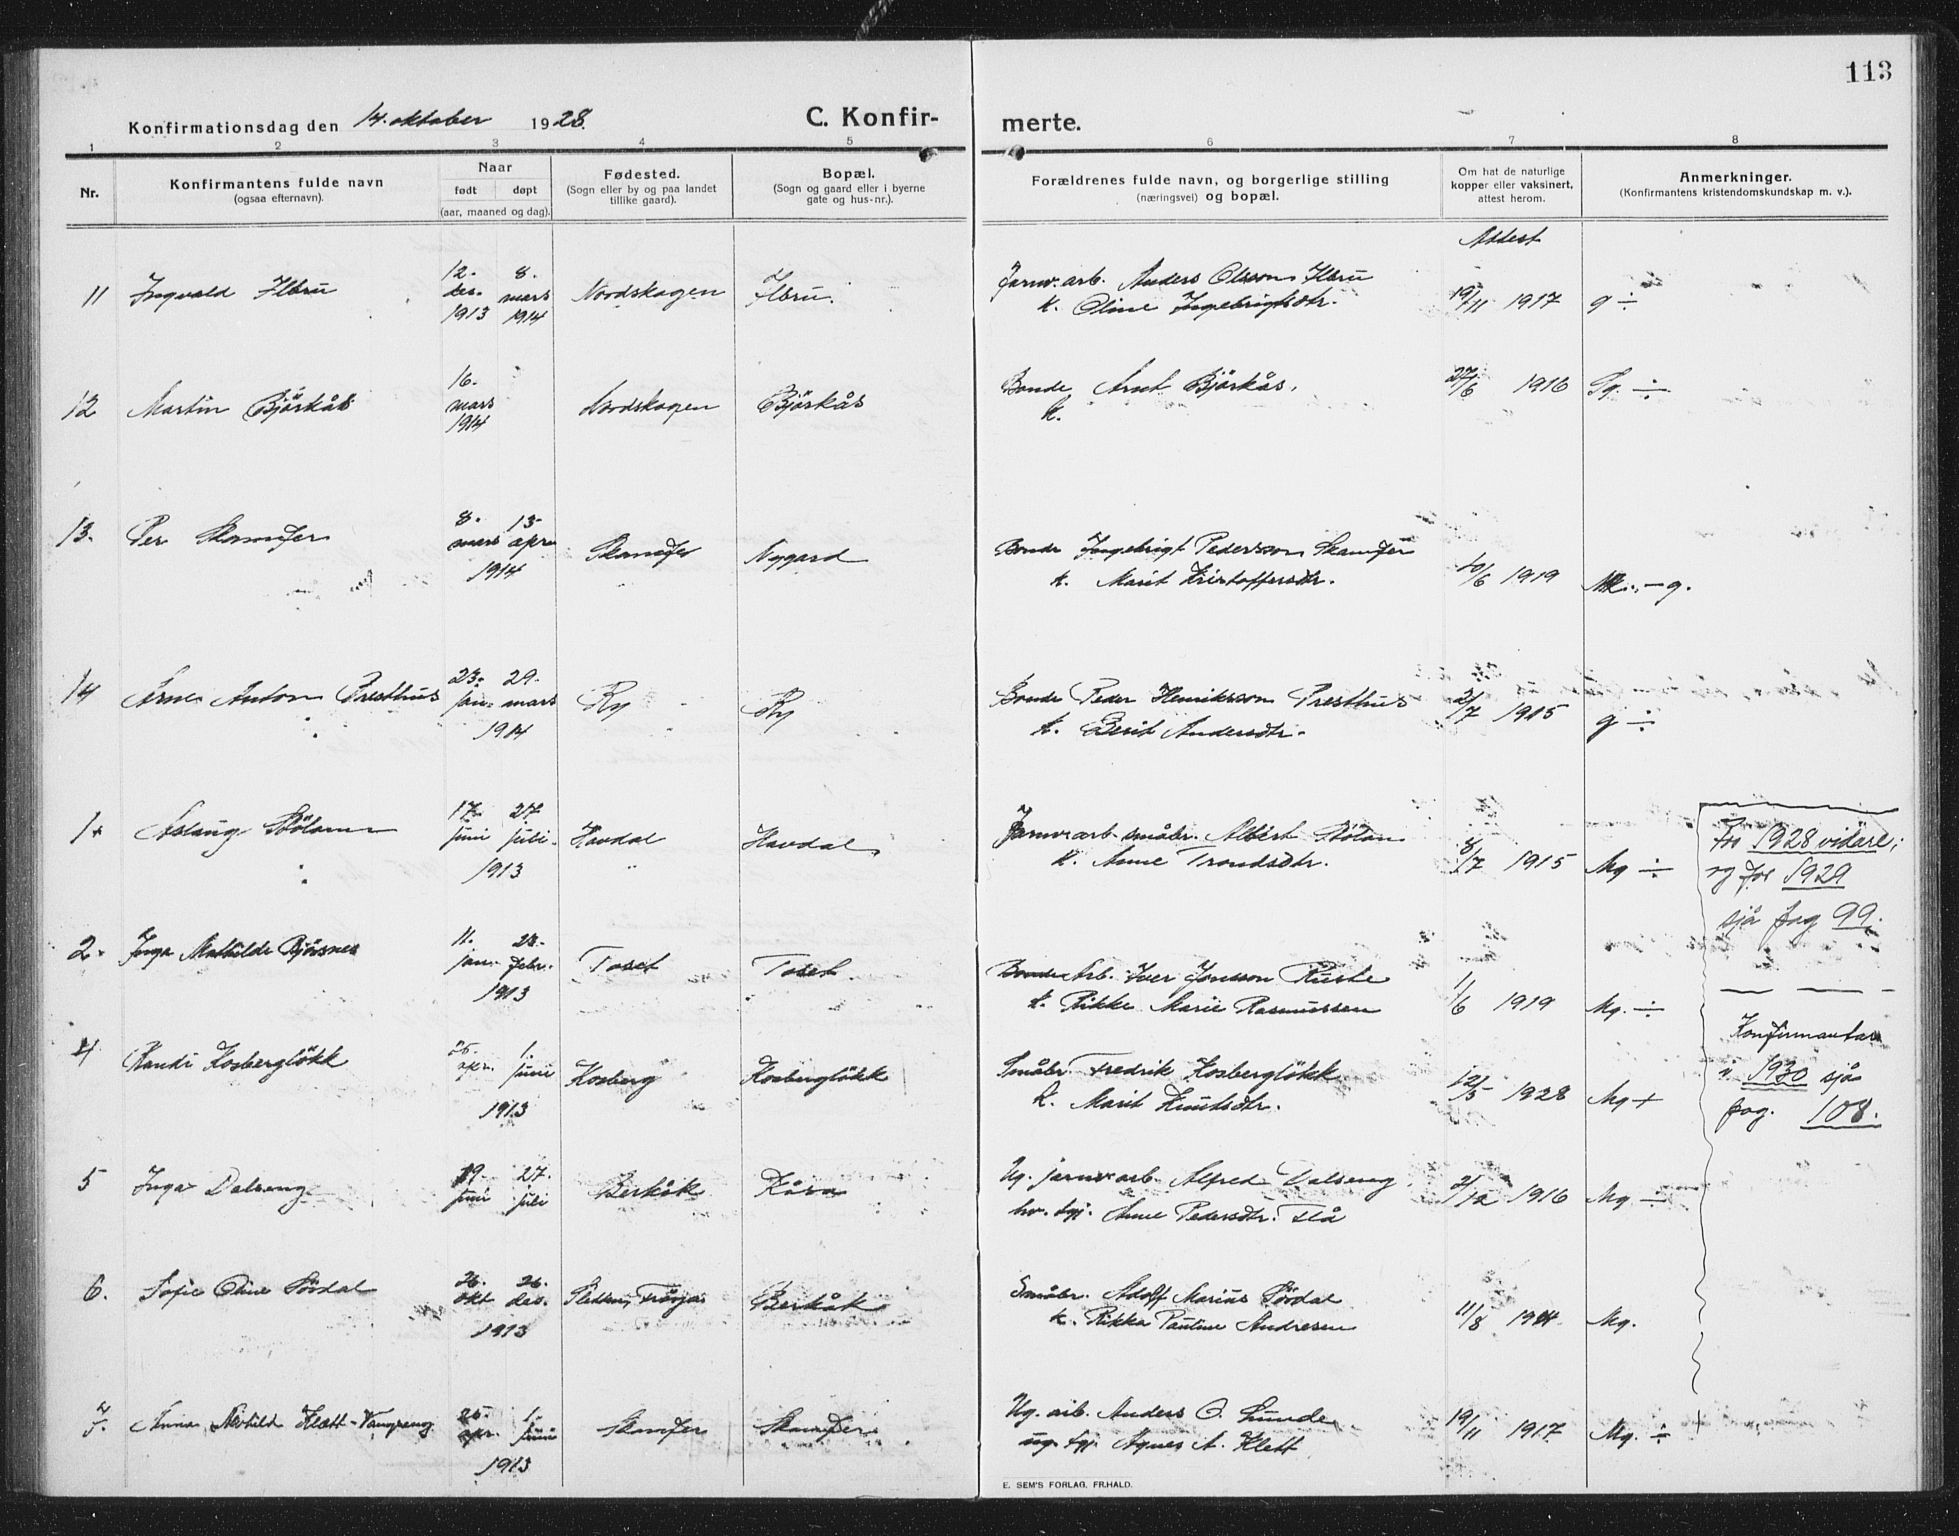 113
Konfirmationsdag den 14. oktober 1928.
C. Konfir-merte.
1 2 3 4 5 6 7 8
Nr.
Konfirmantens fulde navn
(ogsaa efternavn).
Naar
født døpt
(aar, maaned og dag).
Fødested.
(Sogn eller by og paa landet
tillike gaard).
Bopæl.
(Sogn og gaard eller i byerne
gate og hus-nr.).
Forældrenes fulde navn, og borgerlige stilling
(næringsvei) og bopæl.
Om hat de naturlige
kopper eller vaksinert,
attest herom.
Anmerkninger.
(Konfirmantens kristendomskundskap m. v.).
Attest
11 Ingvald Ilbru 12. des. 1913 8. mars 1914 Nordskogen Ilbru. Jarnv. arb. Anders Olsson Ilbru
k. Oline Ingebrigtsdtr. 19/11 1917 g ÷
12 Martin Bjørkås 16. mars 1914 Nordskogen Bjørkås Bonde Arnt Bjørkås.
k. 27/6 1916 Sg. ÷
13. Per Skamfer 8. mars 13. apr. 1914 Skamfer Nygard Bonde Ingebrigt Pedersson Skamfer
k. Marit Kristoffersdtr. 20/6 1919 g.
14 Arne Anton Presthus 23. jan. 29. mars 1914 Ry Ry Bonde Peder Henriksson Presthus
k. Berit Andersdtr. 2/7 1915 g ÷
1+ Aslaug Stölan 17. juni 27 juli 1913 Havdal Havdal Jarnvarb. småbr. Albert Stölan
k. Anne Trondsdtr. 8/7 1915 Mg ÷
2. Inga Mathilde Bjørsnes 11. jan. 23. febr. 1913 Toset Toset Bonde Arb. Iver Jonsson Ruste
k. Rikke Marie Rasmussen 11/6 1919 Mg. ÷
4 Randi Kosbergløkk 25. apr. 1. juni 1913 Kosberg Kosbergløkk Småbr. Fredrik Kosbergløkk
k. Marit Knutsdtr. 12/5 1928 Mg +
5 Inga Dalseng 19. juni 27. juli Berkåk Kåsa Ug. jarnv arb. Alfred Dalseng
hv. tgj. Anne Pedersdtr. Flå 2/12 1916 Mg ÷
6. Sofie Oline Sørdal 26. okt 26. des. 1913 Berkåk Småbr. Adolf Marius Sørdal
k. Rikka Pauline Andresen 11/8 1914. Mg.
7. Anna Klett-Vangseng 25. apr. 1. juni 1913 Skamfer Skamfer Ug. arb. Anders O. Lunde
ug. tgj. Agnes A. Klett 19/11 1917 Mg. ÷
For 1928 vidare;
og for 1929
sjå pag 99.
Konfirmantar
i 1930 sjå
pag. 108.
E. SEM'S FORLAG, FR.HALD.